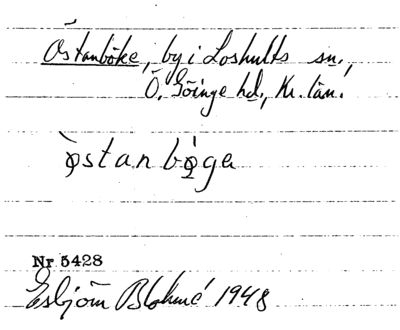 Östanböke, by i Loshults sn.,
Ö. Göinge hd., Kr. län.
ø̀stanbø̀ga
Nr 5428
Esbjörn Blohmé 1948